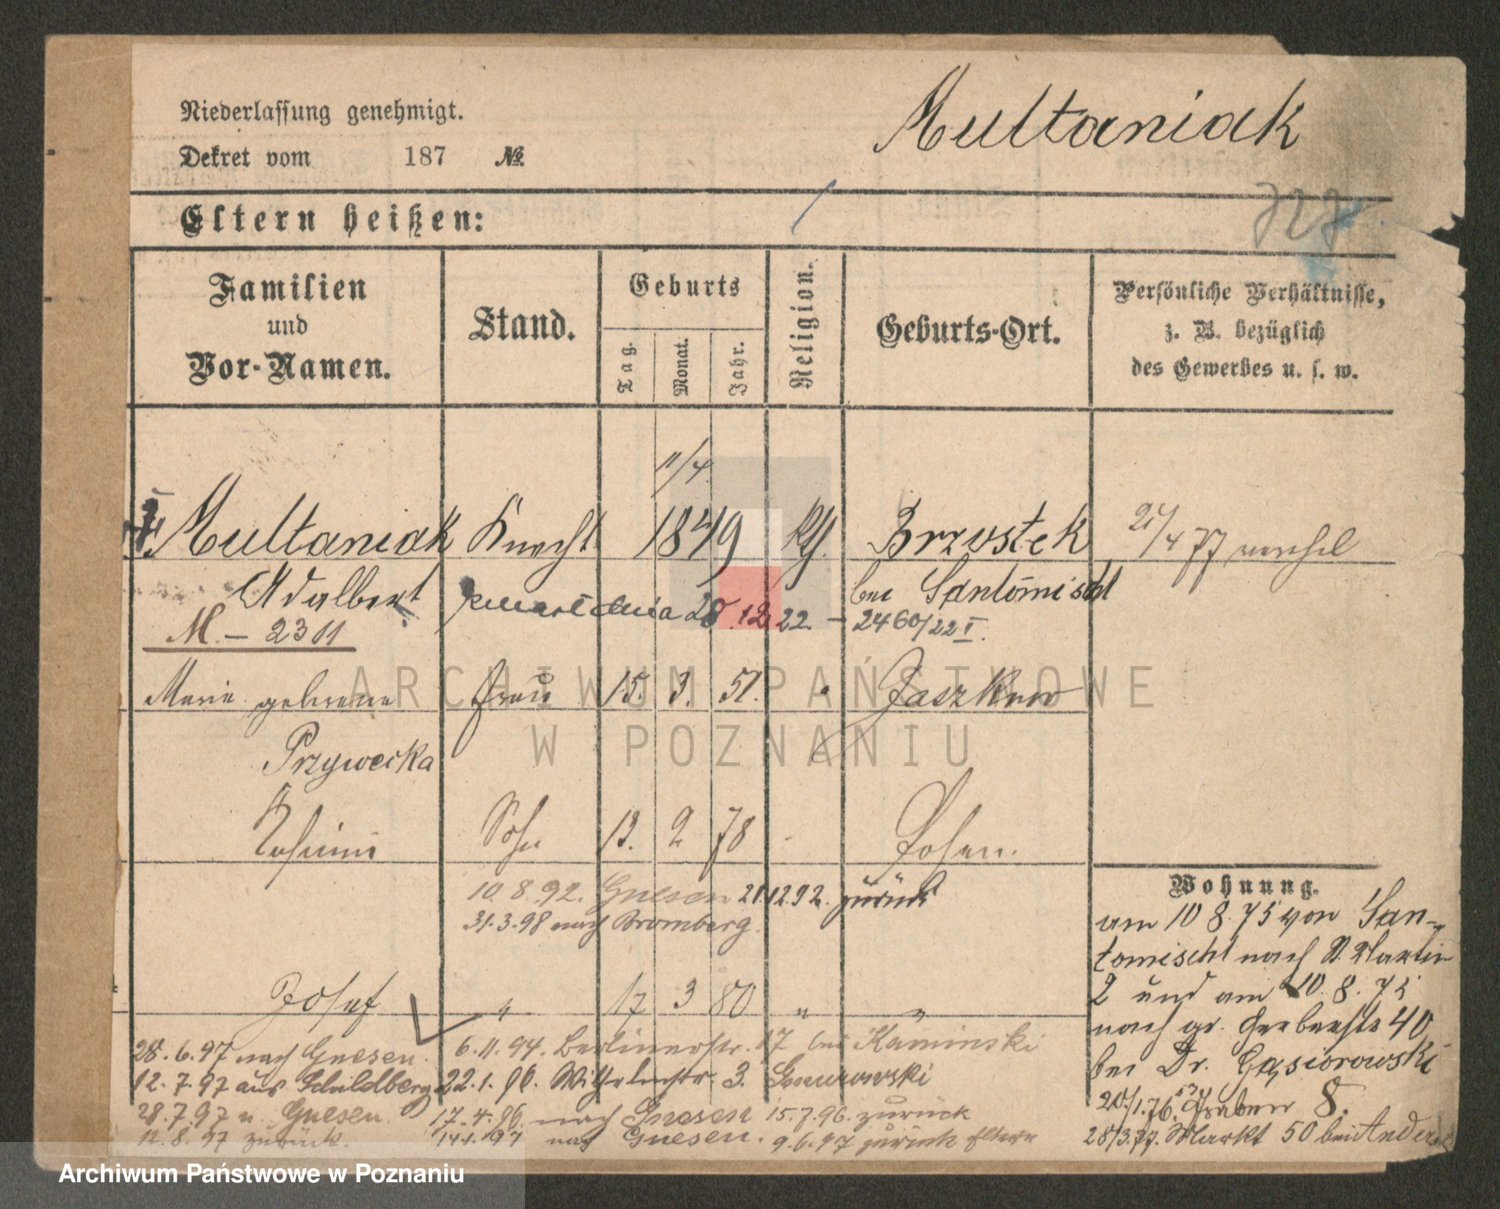 Niederlassung genehmigt.
Multaniak
Dekret vom 187 №
Eltern heißen:
Familien und Vor-Namen.
Stand.
Geburts
Tag.
Monat.
Jahr.
Religion.
Geburts-Ort.
Persönliche Verhältnisse,
z. B. bezüglich
des Gewerbes u. s. w.
11/4.
Multaniak Knecht 1849 Brzostek 21/4 77
Adalbert bei Santomischl
zmarł dnia 28.12.22. – 2460/22 I.
M. – 2311
Marie geborene Frau 15. 3. 51. Jaszkowo
Przywecka
Sohn 13. 2 78 Posen.
10.8.92. Gnesen 21.12.92. zurück
31.3.98 nach Bromberg.
Josef " 17 3 80 " "
28.6.97 nach Gnesen.
12.7.97 aus Schildberg
28.7.97 n. Gnesen.
12.8.97 zurück.
6.11.94. Berlinerstr. 17 bei Kaminski
22.1.96. Wilhelmstr. 3.
17.4.96. nach Gnesen 15.7.96. zurück
14.1.97 nach Gnesen. 9.6.97 zurück Eltern
Wohnung.
am 10 8. 75 von San-
tomischl nach St. Martin
2 und am 10. 8. 75
nach gr. Gerberstr 40
bei Dr. Gąsiorowski
20/1.76. Graben 8.
28/3.77. Markt 50 bei
Archiwum Państwowe w Poznaniu
ARCHIWUM PAŃSTWOWE
W POZNANIU